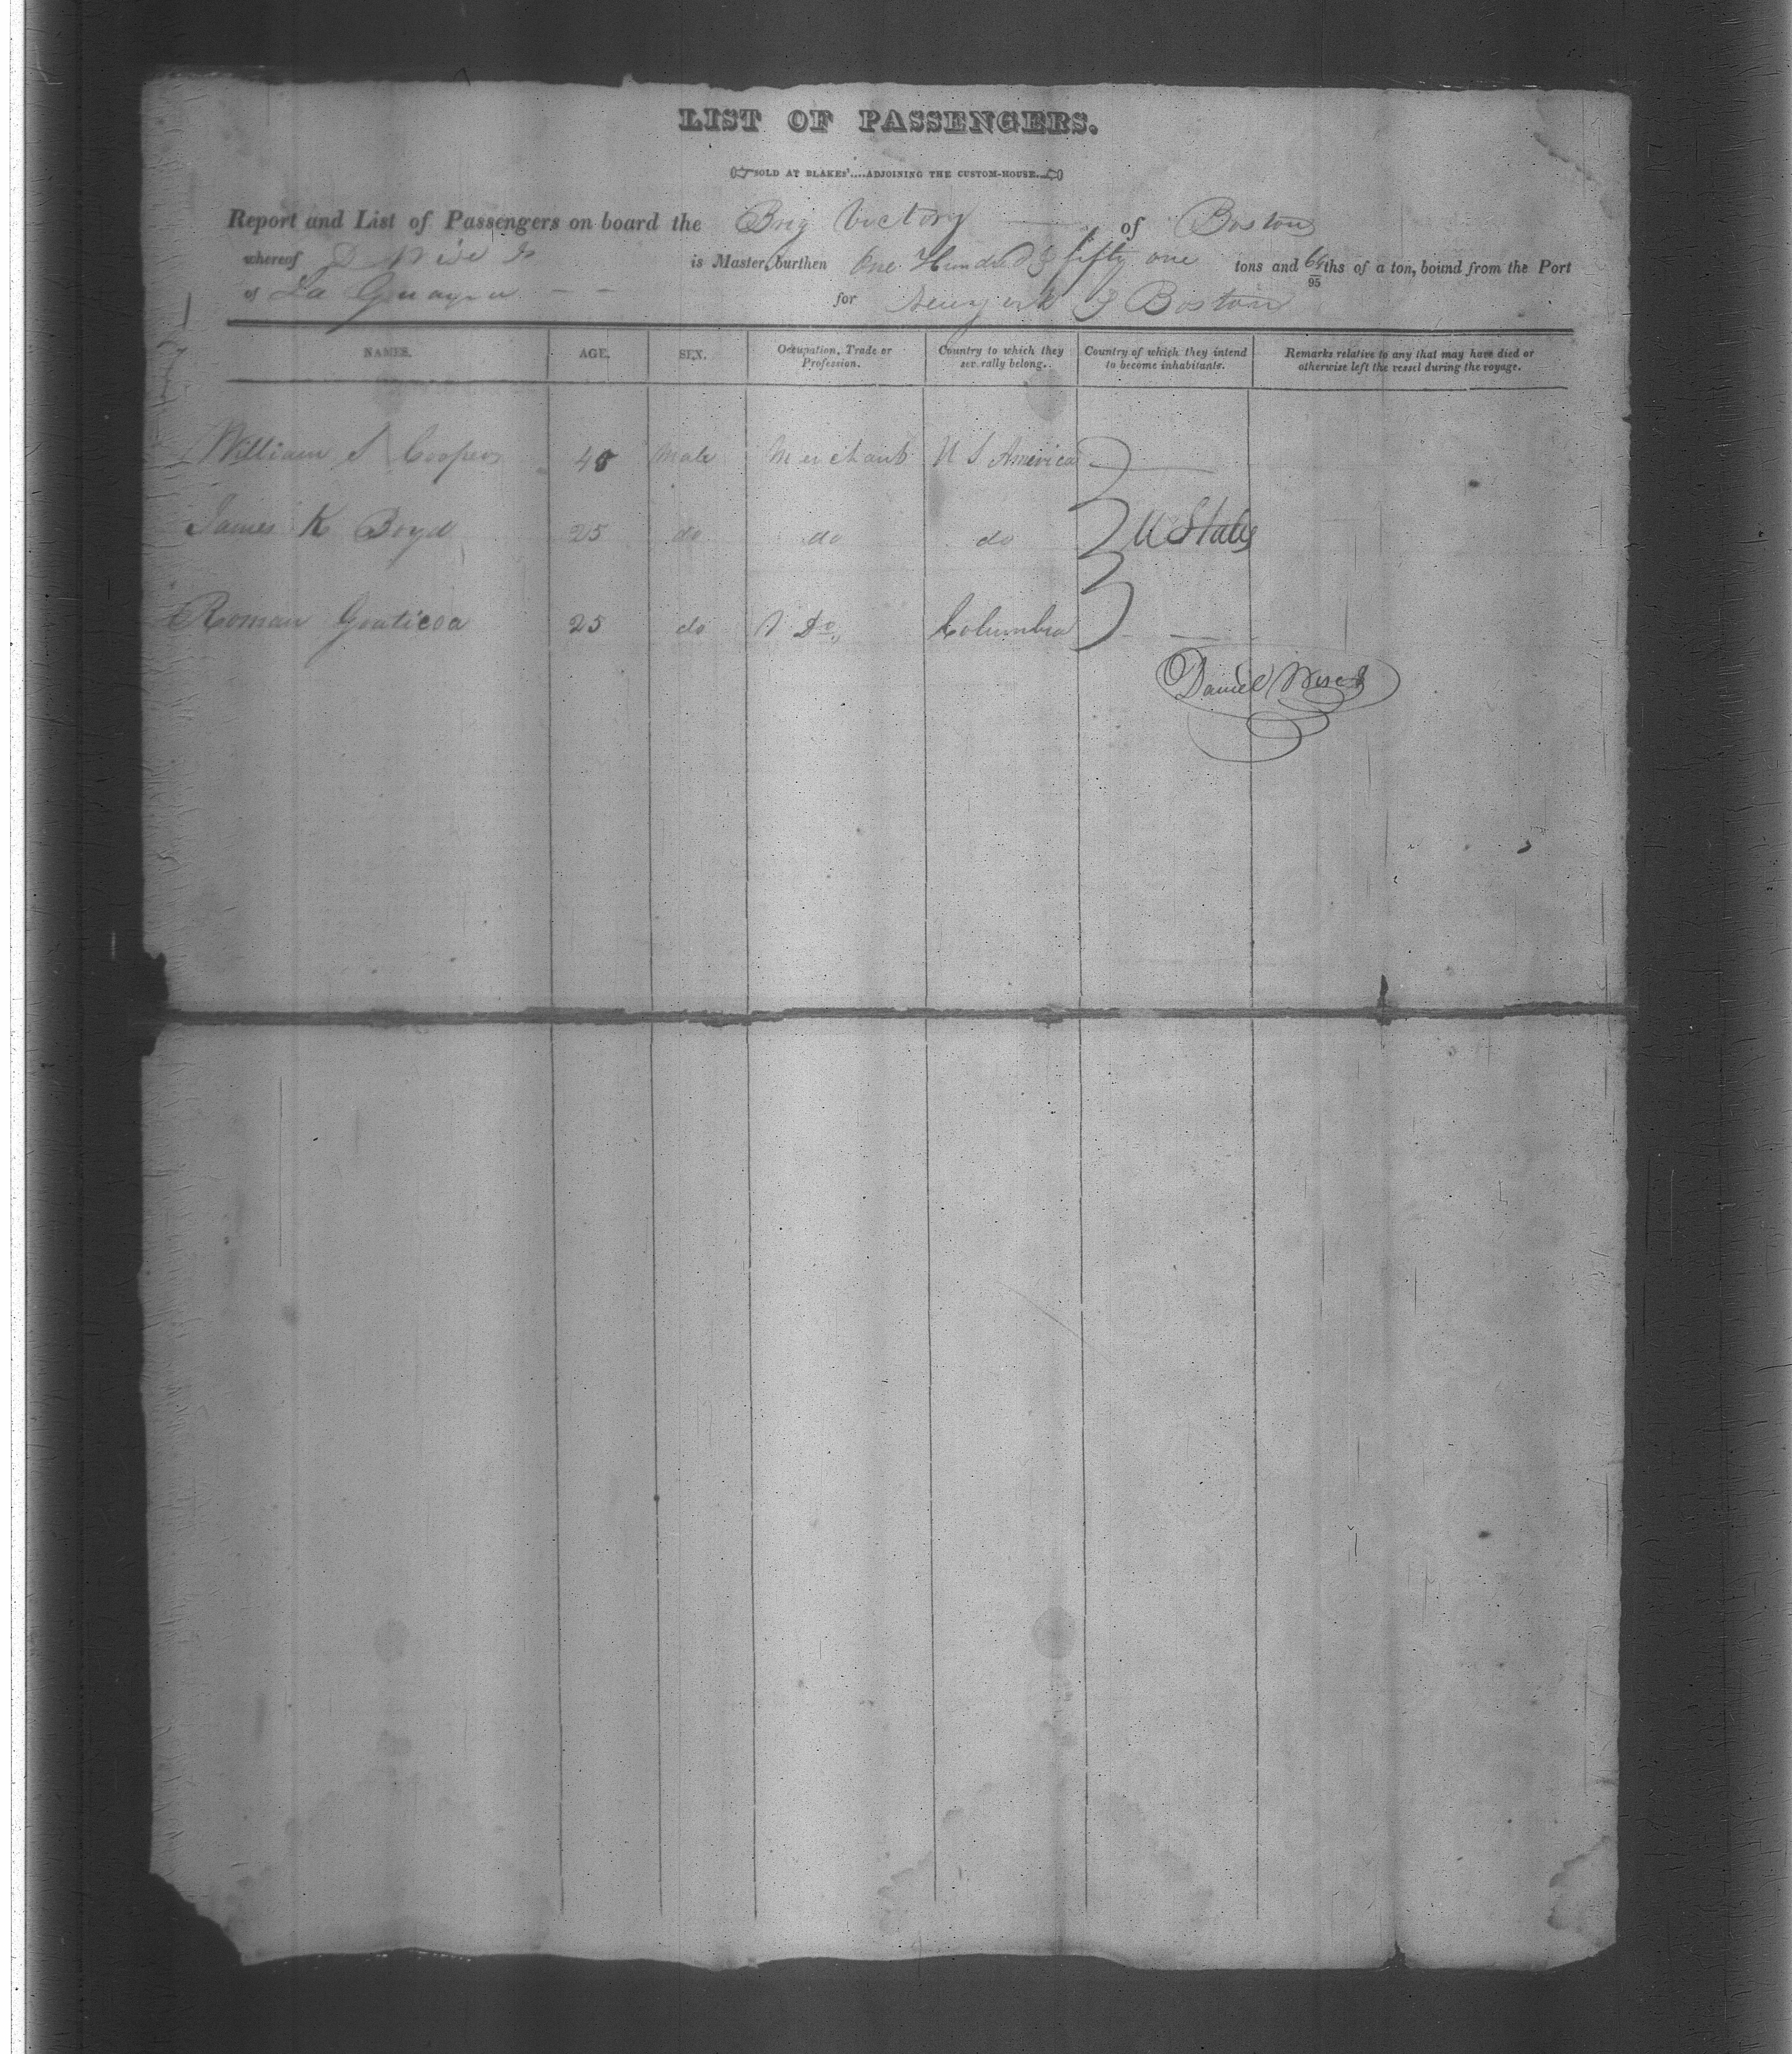 LIST OF PASSENGERS.
SOLD AT BLAKES'....ADJOINING THE CUSTOM-HOUSE....
Report and List of Passengers on board the Brig Victory of Boston
whereof D Wise Jr is Master, burthen One Hundred & fifty one tons and 64/95ths of a ton, bound from the Port
of La Guayra for New york & Boston
NAMES. AGE. SEX. Occupation, Trade or Profession. Country to which they severally belong. Country of which they intend to become inhabitants. Remarks relative to any that may have died or otherwise left the vessel during the voyage.
William S Cooper 48 Male Merchant U S America
James K Boyd 25 do do do U States
Roman 25 do Do Columbia
Daniel Wise Jr